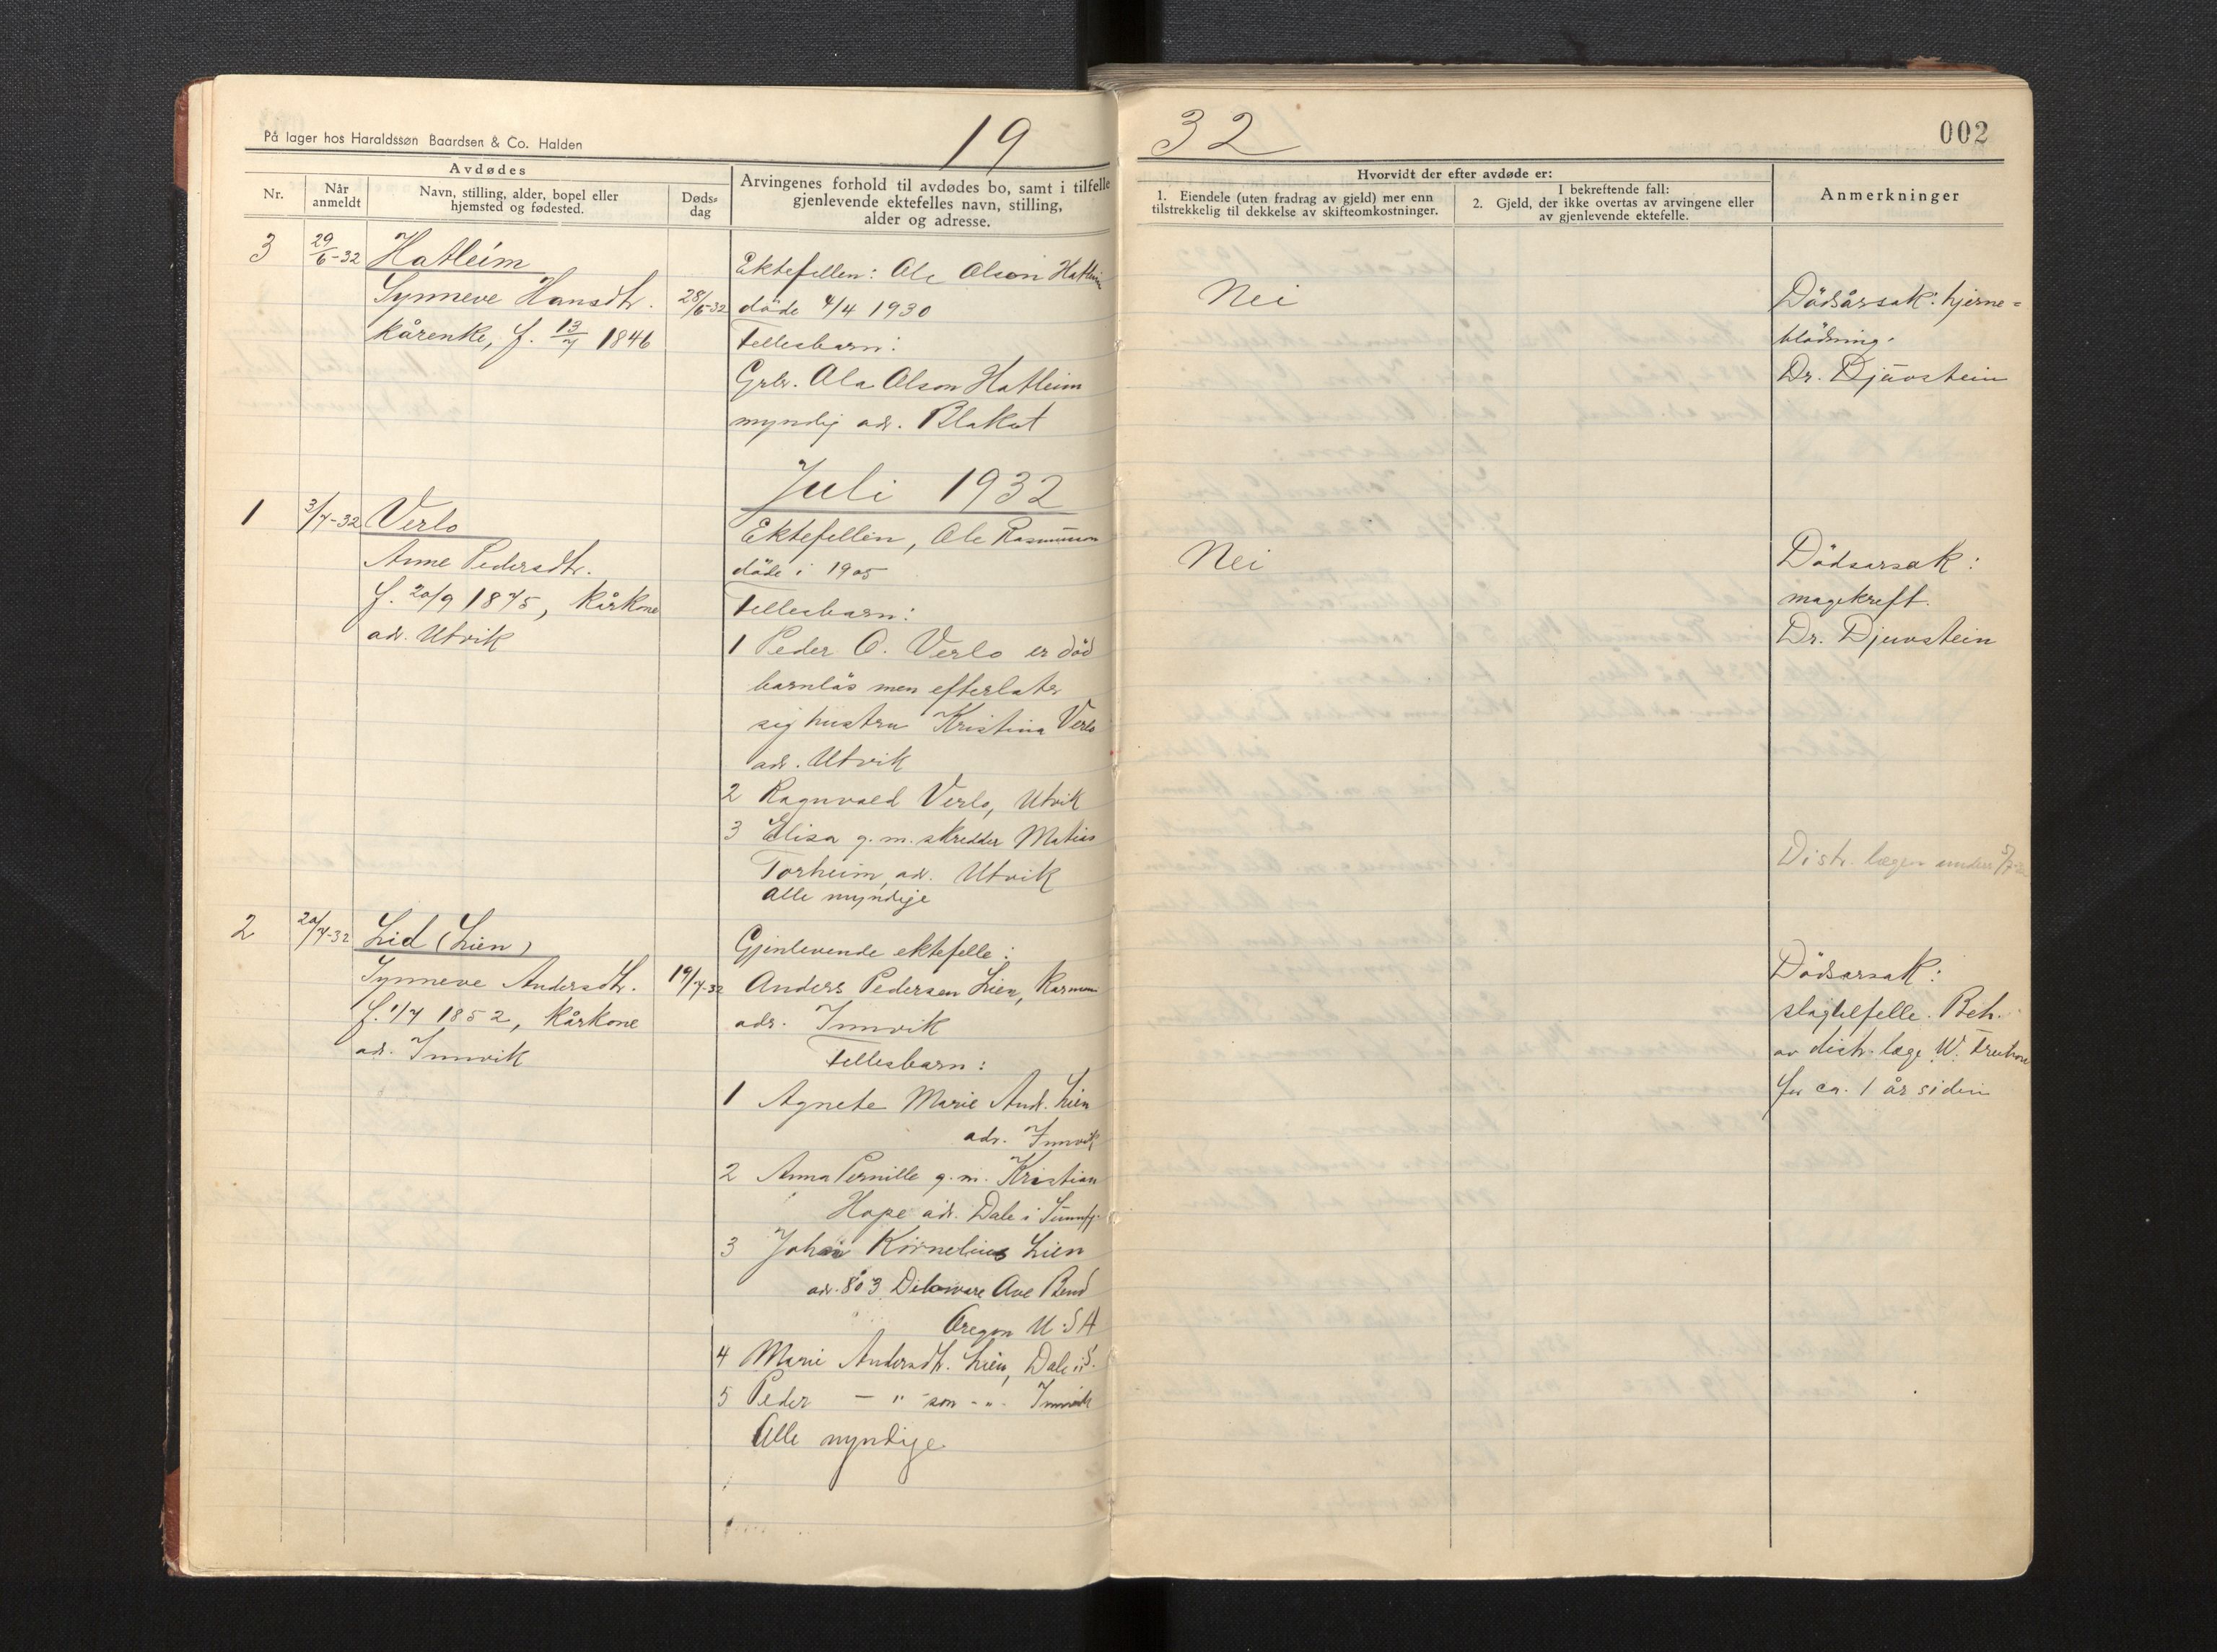 På lager hos Haraldssøn Baardsen & Co. Halden
19
Avdødes
Nr.
Når anmeldt
Navn, stilling, alder, bopel eller hjemsted og fødested.
Døds-dag
Arvingenes forhold til avdødes bo, samt i tilfelle
gjenlevende ektefelles navn, stilling,
alder og adresse.
3
29/6-32
Hatleim
Synneve Hansdtr.
28/6-32
kårenke, f. 13/7 1846
Ektefellen: Ole Olson Hatleim
døde 4/4 1930
Fellesbarn:
Grbr. Ola Olson Hatleim
myndig adr. Blakset
Juli 1932
1
3/7-32
Verlo
Anne Pedersdtr.
f. 20/9 1875, kårkone
adr. Utvik
Ektefellen, Ole Rasmusson
døde i 1905
Fellesbarn:
1 Peder O. Verlo er død
barnløs men efterlater
sig hustru Kristina Verlo
adr. Utvik
2 Ragnvald Verlo, Utvik
3 Elisa g.m. skredder Matias
Torheim, adr. Utvik
Alle myndige
2
20/7-32
Lid (Lien)
Synneve Andersdtr.
19/7-32
f. 1/7 1852, kårkone
adr. Innvik
Gjenlevende ektefelle:
Anders Pedersen Lien, Karmann
adr. Innvik
Fellesbarn:
1 Agnete Marie And. Lien
adr. Innvik
2 Anna Pernille g.m. Kristian
Hope adr. Dale i Sunnfj.
3 Johan Kornelius Lien
adr. 803 Delaware Ave Bend
Oregon U.S.A
4 Marie Andersdtr. Lien, Dale i S.
5 Peder — " — son - " - Innvik
Alle myndige
32
002
Hvorvidt der efter avdøde er:
1. Eiendele (uten fradrag av gjeld) mer enn
tilstrekkelig til dekkelse av skifteomkostninger.
I bekreftende fall:
2. Gjeld, der ikke overtas av arvingene eller
av gjenlevende ektefelle.
Anmerkninger
Nei
Dödsårsak: hjerne=
blödning.
Dr. Djuvstein
Nei
Dödsarsak:
magekreft.
Dr. Djuvstein
Distr. lægen
Dödsarsak:
slagtilfelle. Beh.
av distr. læge W.
for ca. 1 år siden